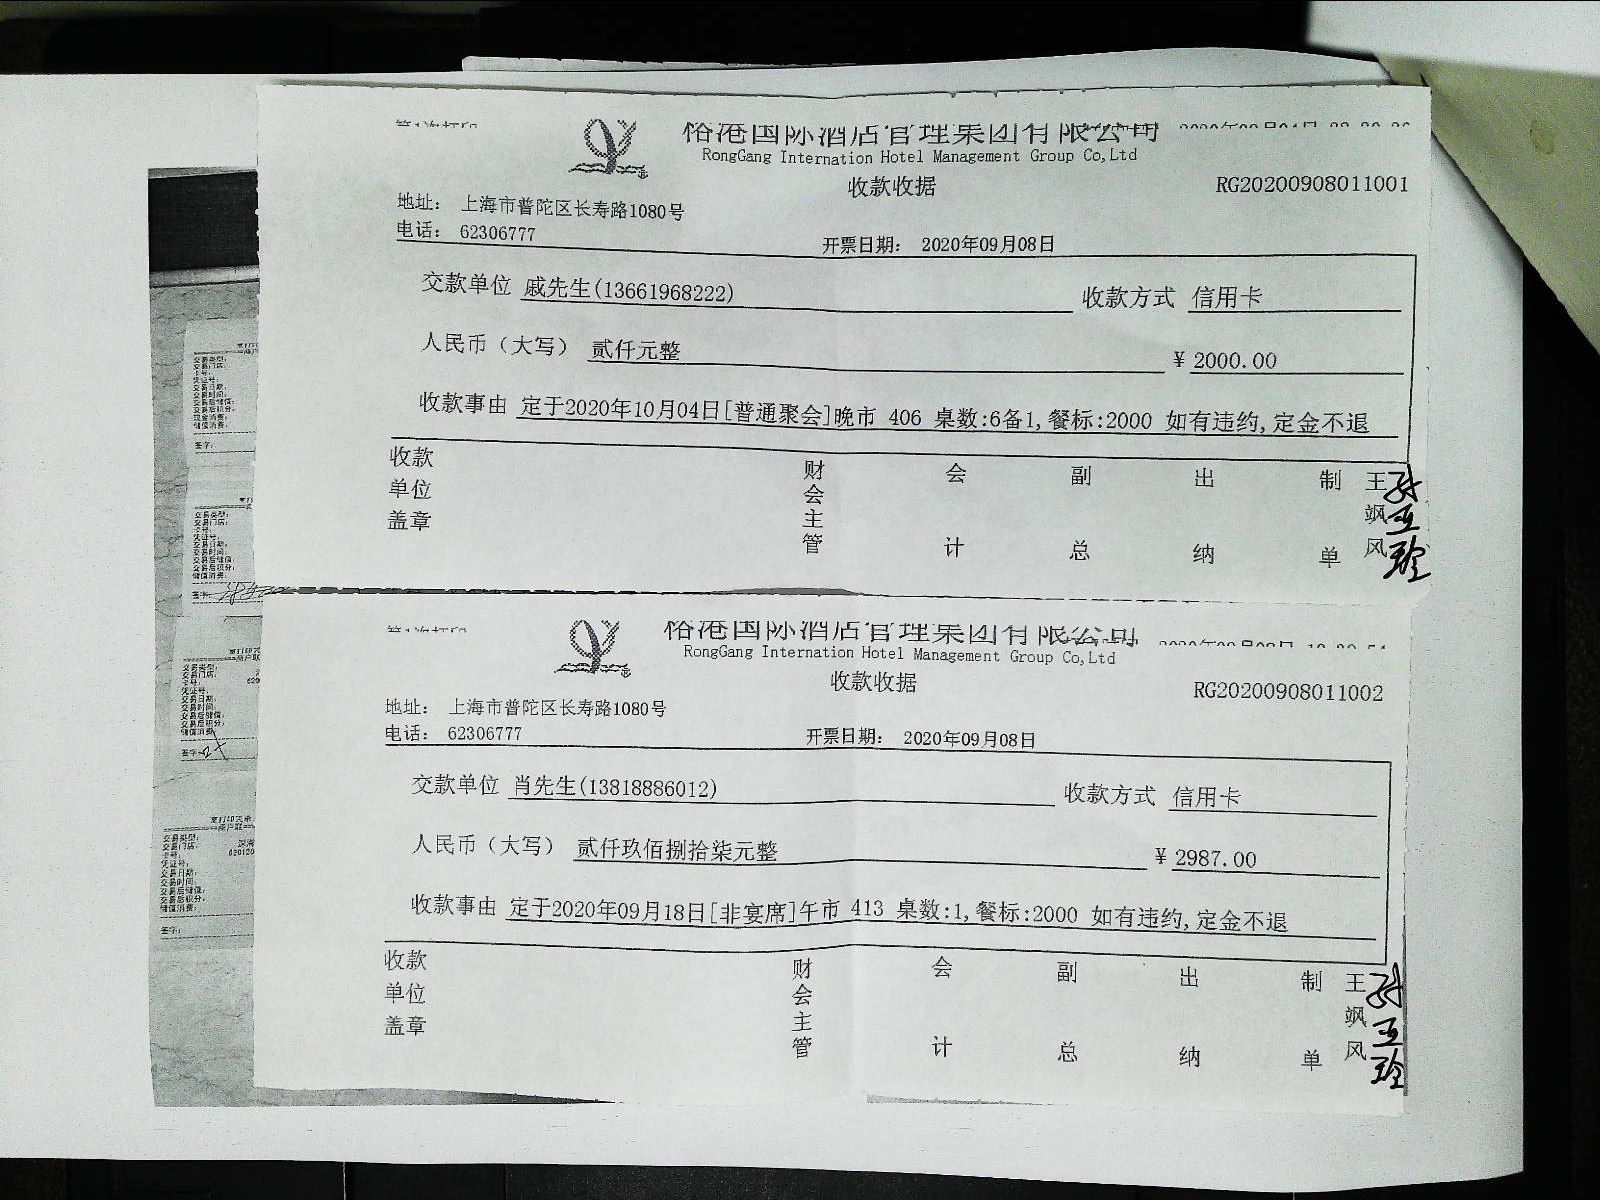 第1次打印
裕港国际酒店管理集团有限公司
RongGang Internation Hotel Management Group Co,Ltd
收款收据
RG20200908011001
地址： 上海市普陀区长寿路1080号
电话： 62306777
开票日期： 2020年09月08日
交款单位 戚先生(13661968222)
收款方式 信用卡
人民币（大写） 贰仟元整
¥ 2000.00
收款事由 定于2020年10月04日[普通聚会]晚市 406 桌数:6备1,餐标:2000 如有违约,定金不退
收款单位盖章 财会主管 会计 副总 出纳 制单 王飒风
第1次打印
裕港国际酒店管理集团有限公司
RongGang Internation Hotel Management Group Co,Ltd
收款收据
RG20200908011002
地址： 上海市普陀区长寿路1080号
电话： 62306777
开票日期： 2020年09月08日
交款单位 肖先生(13818886012)
收款方式 信用卡
人民币（大写） 贰仟玖佰捌拾柒元整
¥ 2987.00
收款事由 定于2020年09月18日[非宴席]午市 413 桌数:1,餐标:2000 如有违约,定金不退
收款单位盖章 财会主管 会计 副总 出纳 制单 王飒风